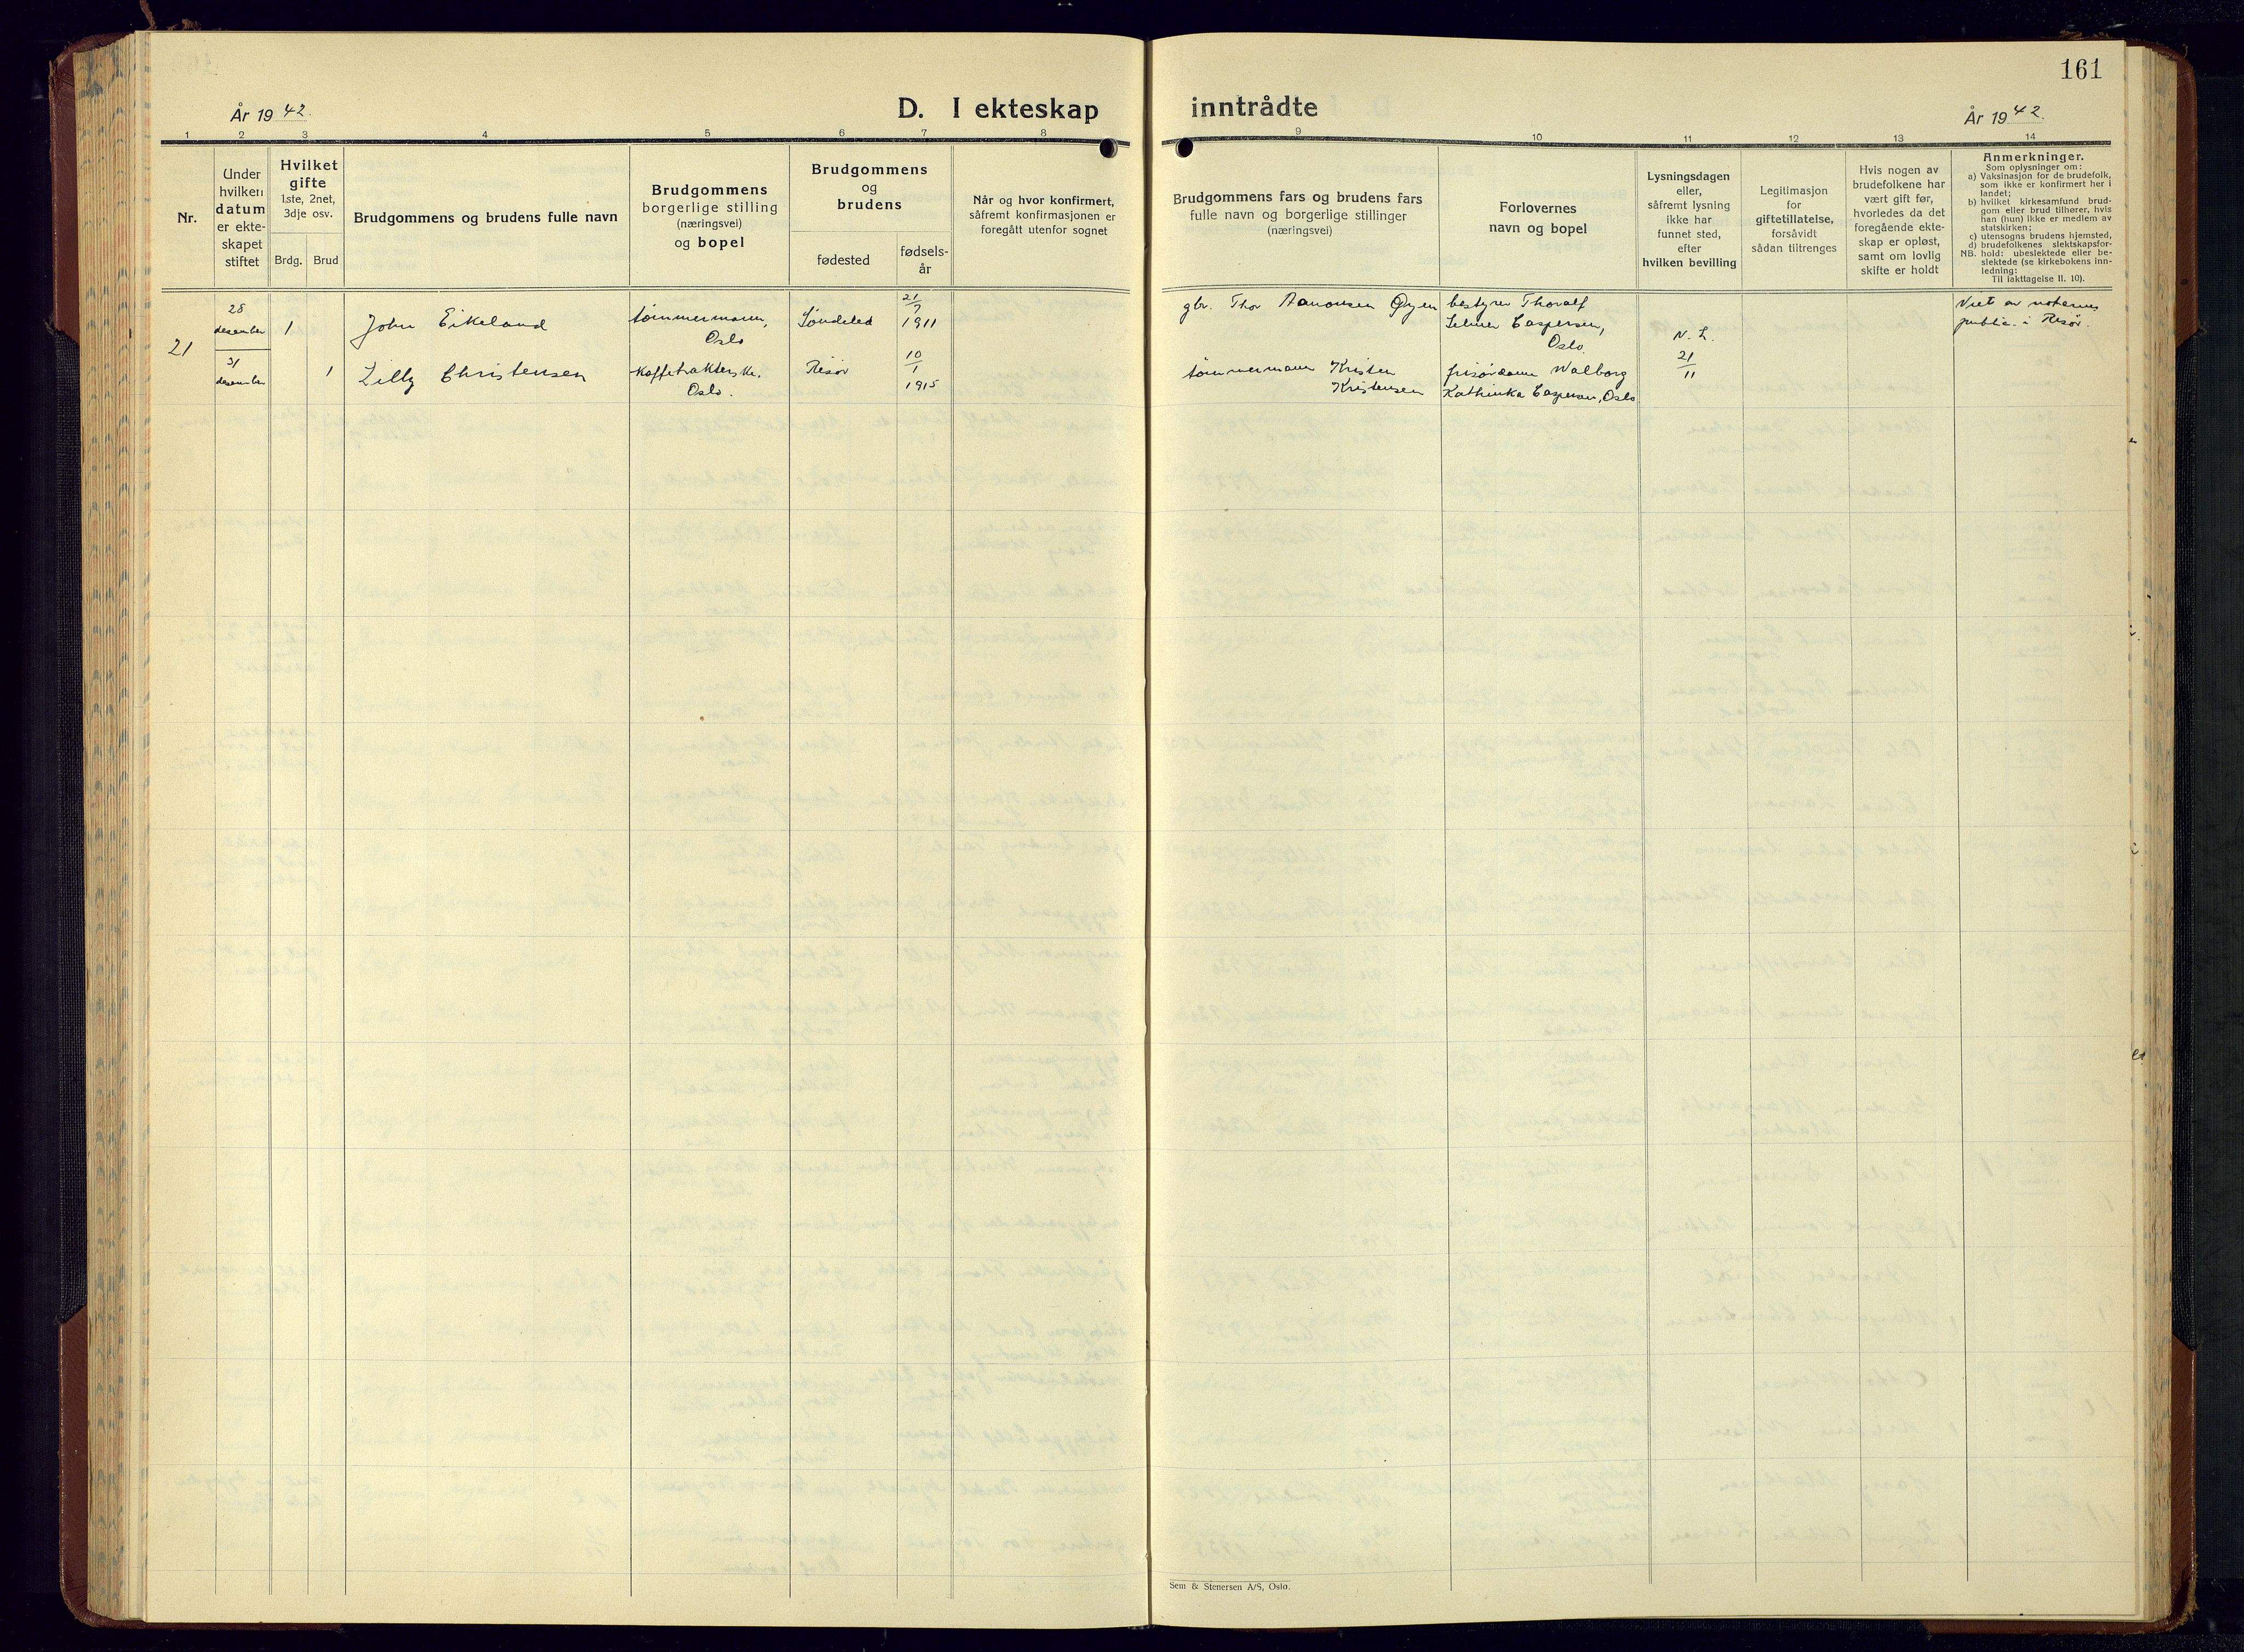 161
År 1942.
D. I ekteskap inntrådte
År 1942.
1 2 3 4 5 6 7 8 9 10 11 12 13 14
Nr.
Under
hvilken
datum
er ekte-
skapet
stiftet
Hvilket
gifte
1ste, 2net,
3dje osv.
Brdg. Brud
Brudgommens og brudens fulle navn
Brudgommens
borgerlige stilling
(næringsvei)
og bopel
Brudgommens
og
brudens
fødested
fødsels-
år
Når og hvor konfirmert,
såfremt konfirmasjonen er
foregått utenfor sognet
Brudgommens fars og brudens fars
fulle navn og borgerlige stillinger
(næringsvei)
Forlovernes
navn og bopel
Lysningsdagen
eller,
såfremt lysning
ikke har
funnet sted,
efter
hvilken bevilling
Legitimasjon
for
giftetillatelse,
forsåvidt
sådan tiltrenges
Hvis nogen av
brudefolkene har
vært gift før,
hvorledes da det
foregående ekte-
skap er opløst,
samt om lovlig
skifte er holdt
Anmerkninger.
Som oplysninger om:
a) Vaksinasjon for de brudefolk,
som ikke er konfirmert her i
landet;
b) hvilket kirkesamfund brud-
gom eller brud tilhører, hvis
han (hun) ikke er medlem av
statskirken;
c) utensogns brudens hjemsted,
d) brudefolkenes slektskapsfor-
NB. hold: ubeslektede eller be-
slektede (se kirkebokens inn-
ledning:
Til iakttagelse II. 10).
21
28
desember
1
John Eikeland
tømmermann,
Oslo
Søndeled
21
7
1911
gbr. Thor Aanonsen Øyen
bestyrer Thoralf
Selmer Caspersen,
Oslo.
N. L.
21
11
Viet av notarius
public. i Risør.
31
desember
1
Lilly Christensen
kaffetrakterske.
Oslo.
Risør
10
1
1915
tømmermann Kristen
Kristensen
frisørdame Walborg
Kathinka Caspersen, Oslo
Sem & Stenersen A/S, Oslo.